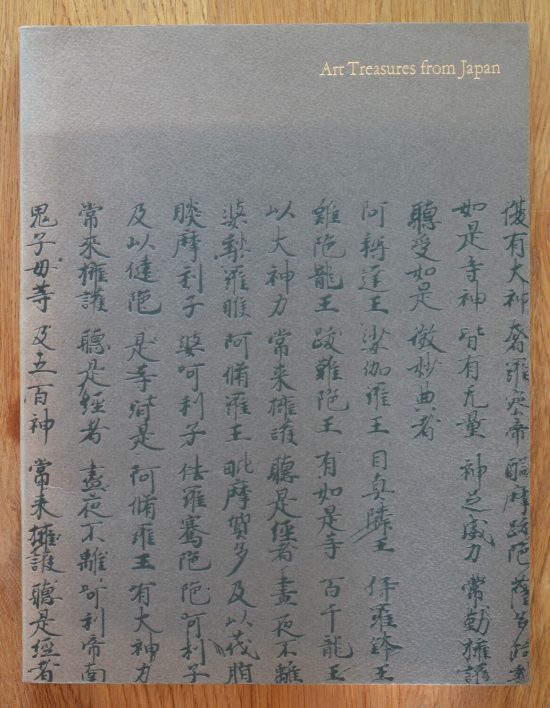 Art Treasures from Japan
大神 奢羅蜜帝 醯摩跋陀 薩多
如是等神 皆有无量 神足威力 常勤擁護
聽受如是 微妙典者
阿耨達王 娑伽羅王 目真隣王 伊羅鉢王
難陀龍王 跋難陀王 有如是等 百千龍王
以大神力 常来擁護 聽是經者 晝夜不離
羅睺 阿脩羅王 毗摩質多 及以茂脂
睒摩利子 婆呵利子 佉羅騫陀 陀呵利子
及以揵陀 是等皆是 阿脩羅王 有大神力
常來擁護 聽是經者 晝夜不離 呵利帝南
鬼子母等 及五百神 常来擁護 聽是經者